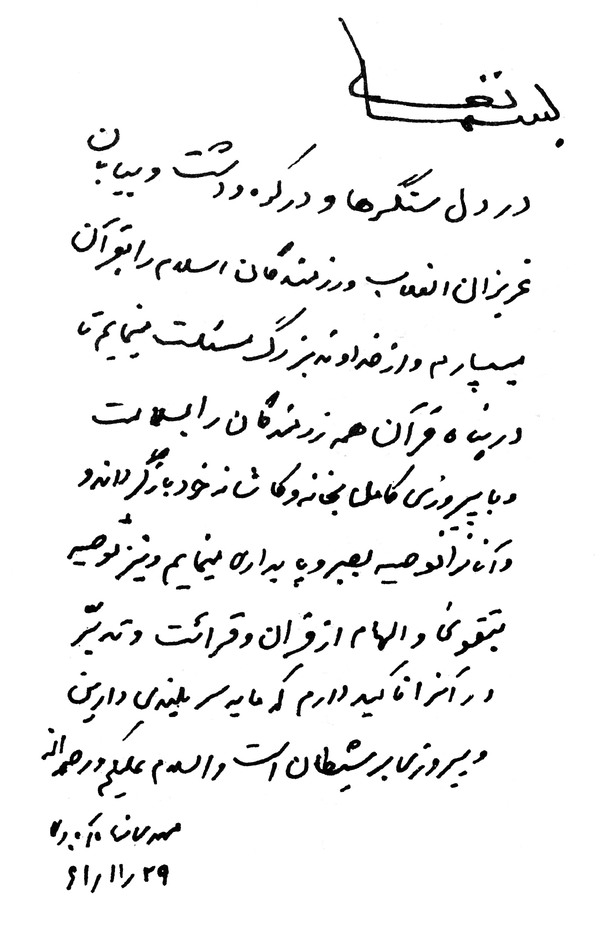 بسمه تعالی
در دل سنگرها و در کوه و دشت و بیابان
عزیزان انقلاب و رزمندگان اسلام را بقرآن
میسپارم و از خداوند بزرگ مسئلت مینمایم تا
در پناه قرآن همه رزمندگان را بسلامت
و با پیروزی کامل بخانه و کاشانه خود بازگرداند و
و آنانرا توصیه بصبر و پایداری مینمایم و نیز توصیه
بتقوی و الهام از قران و قرائت و تدبّر
در آنرا تاکید دارم که مایه سربلندی دارین
و پیروزی بر شیطان است والسلام علیکم و رحمه الله
مهدی
۲۹ ر ۱۱ ر ۶۱